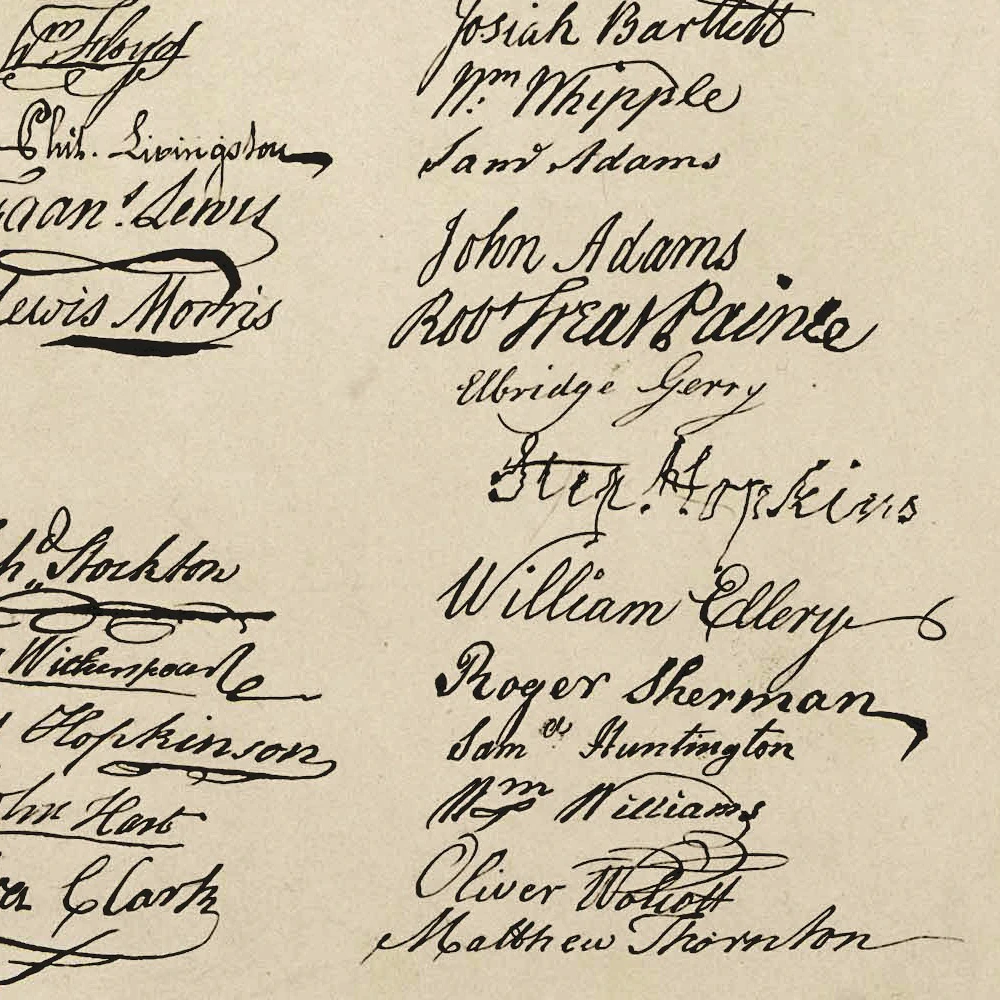 Wm Floyd
Phil. Livingston
Fran.s Lewis
Lewis Morris
Stockton
Witherspoon
Hopkinson
John Hart
Clark
Josiah Bartlett
Wm: Whipple
Saml Adams
John Adams
Robt Treat Paine
Elbridge Gerry
Step. Hopkins
William Ellery
Roger Sherman
Samel Huntington
Wm Williams
Oliver Wolcott
Matthew Thornton